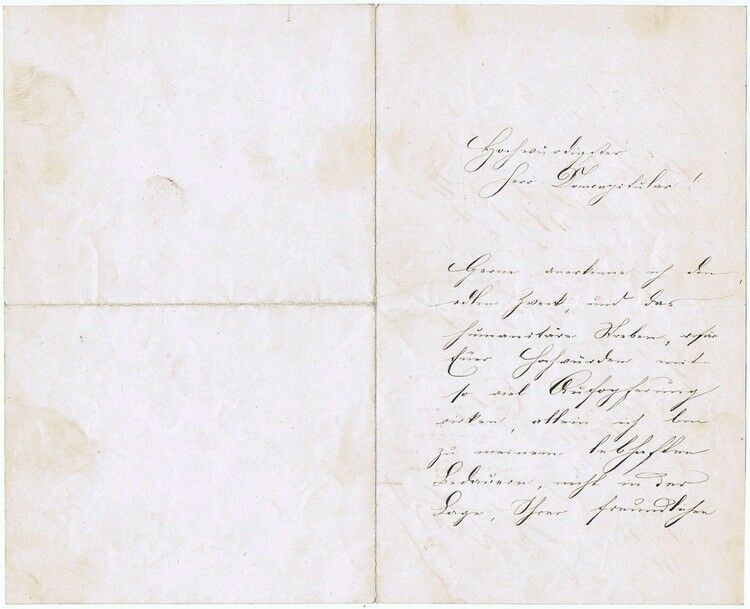 Hochwürdigster
Herr Domcapitular!
Gerne anerkenne ich den
edlen Zweck, und das
humanitäre Streben, wofür
Euer Hochwürden mit
so viel Aufopferung
wirken, allein ich bin
zu meinem lebhaften
Bedauern, nicht in der
Lage, Ihrer freundlichen